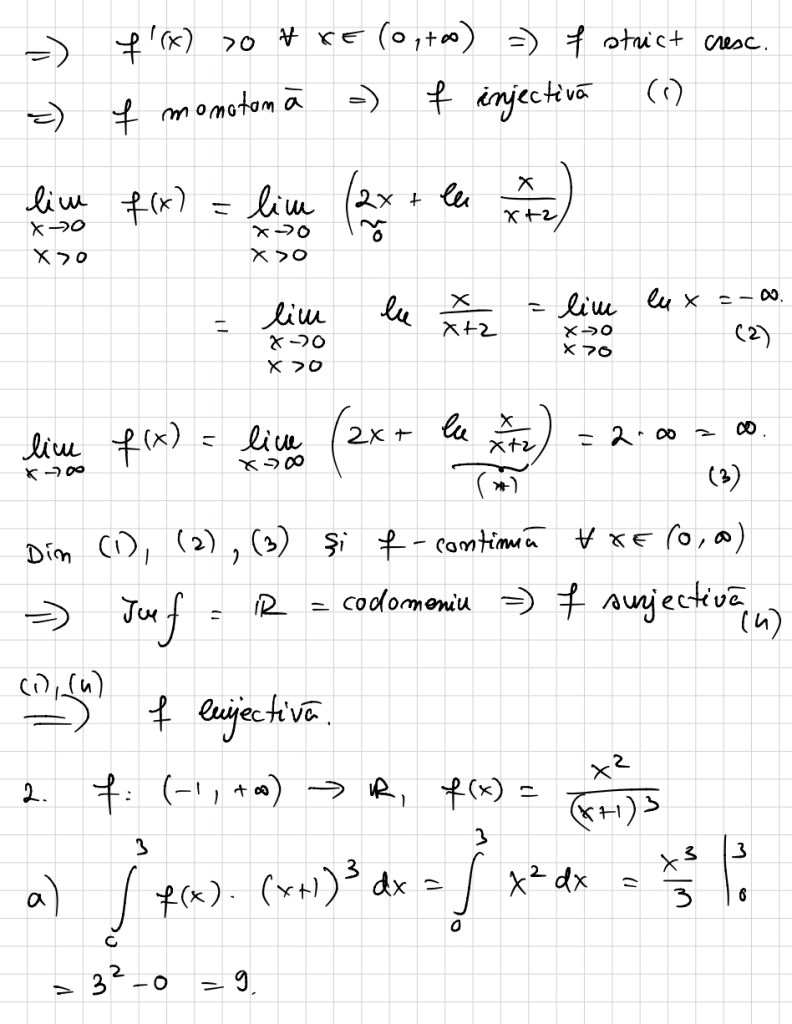 ⇒ f'(x) > 0 ∀ x ∈ (0, +∞) ⇒ f strict cresc.
⇒ f monotonă ⇒ f injectivă (1)
lim_{x→0, x>0} f(x) = lim_{x→0, x>0} (2x + ln x/(x+2))
0
= lim_{x→0, x>0} ln x/(x+2) = lim_{x→0, x>0} ln x = -∞. (2)
lim_{x→∞} f(x) = lim_{x→∞} (2x + ln x/(x+2)) = 2·∞ = ∞. (3)
(*)
Din (1), (2), (3) și f - continuă ∀ x ∈ (0, ∞)
⇒ Im f = ℝ = codomeniu ⇒ f surjectivă (4)
(1), (4) ⇒ f bijectivă.
2. f: (-1, +∞) → ℝ, f(x) = x²/(x+1)³
a) ∫₀³ f(x)·(x+1)³ dx = ∫₀³ x² dx = x³/3 |₀³
= 3² - 0 = 9.